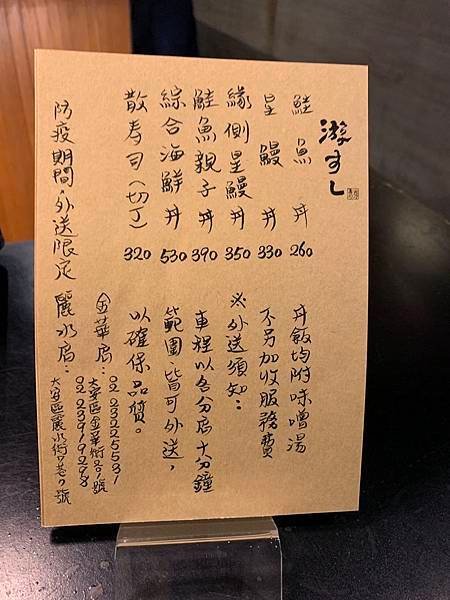 游すし
鮭魚丼 260
星鰻丼 330
緣側星鰻丼 350
鮭魚親子丼 390
綜合海鮮丼 530
散寿司(切丁) 320
丼飯均附味噌湯
不另加收服務費
※外送須知:
車程以各分店十分鐘
範圍皆可外送,
以確保品質。
防疫期間外送限定
金華店:
02 23225531
大安區金華街
麗水店:
02 23919298
大安區麗水街7巷7號